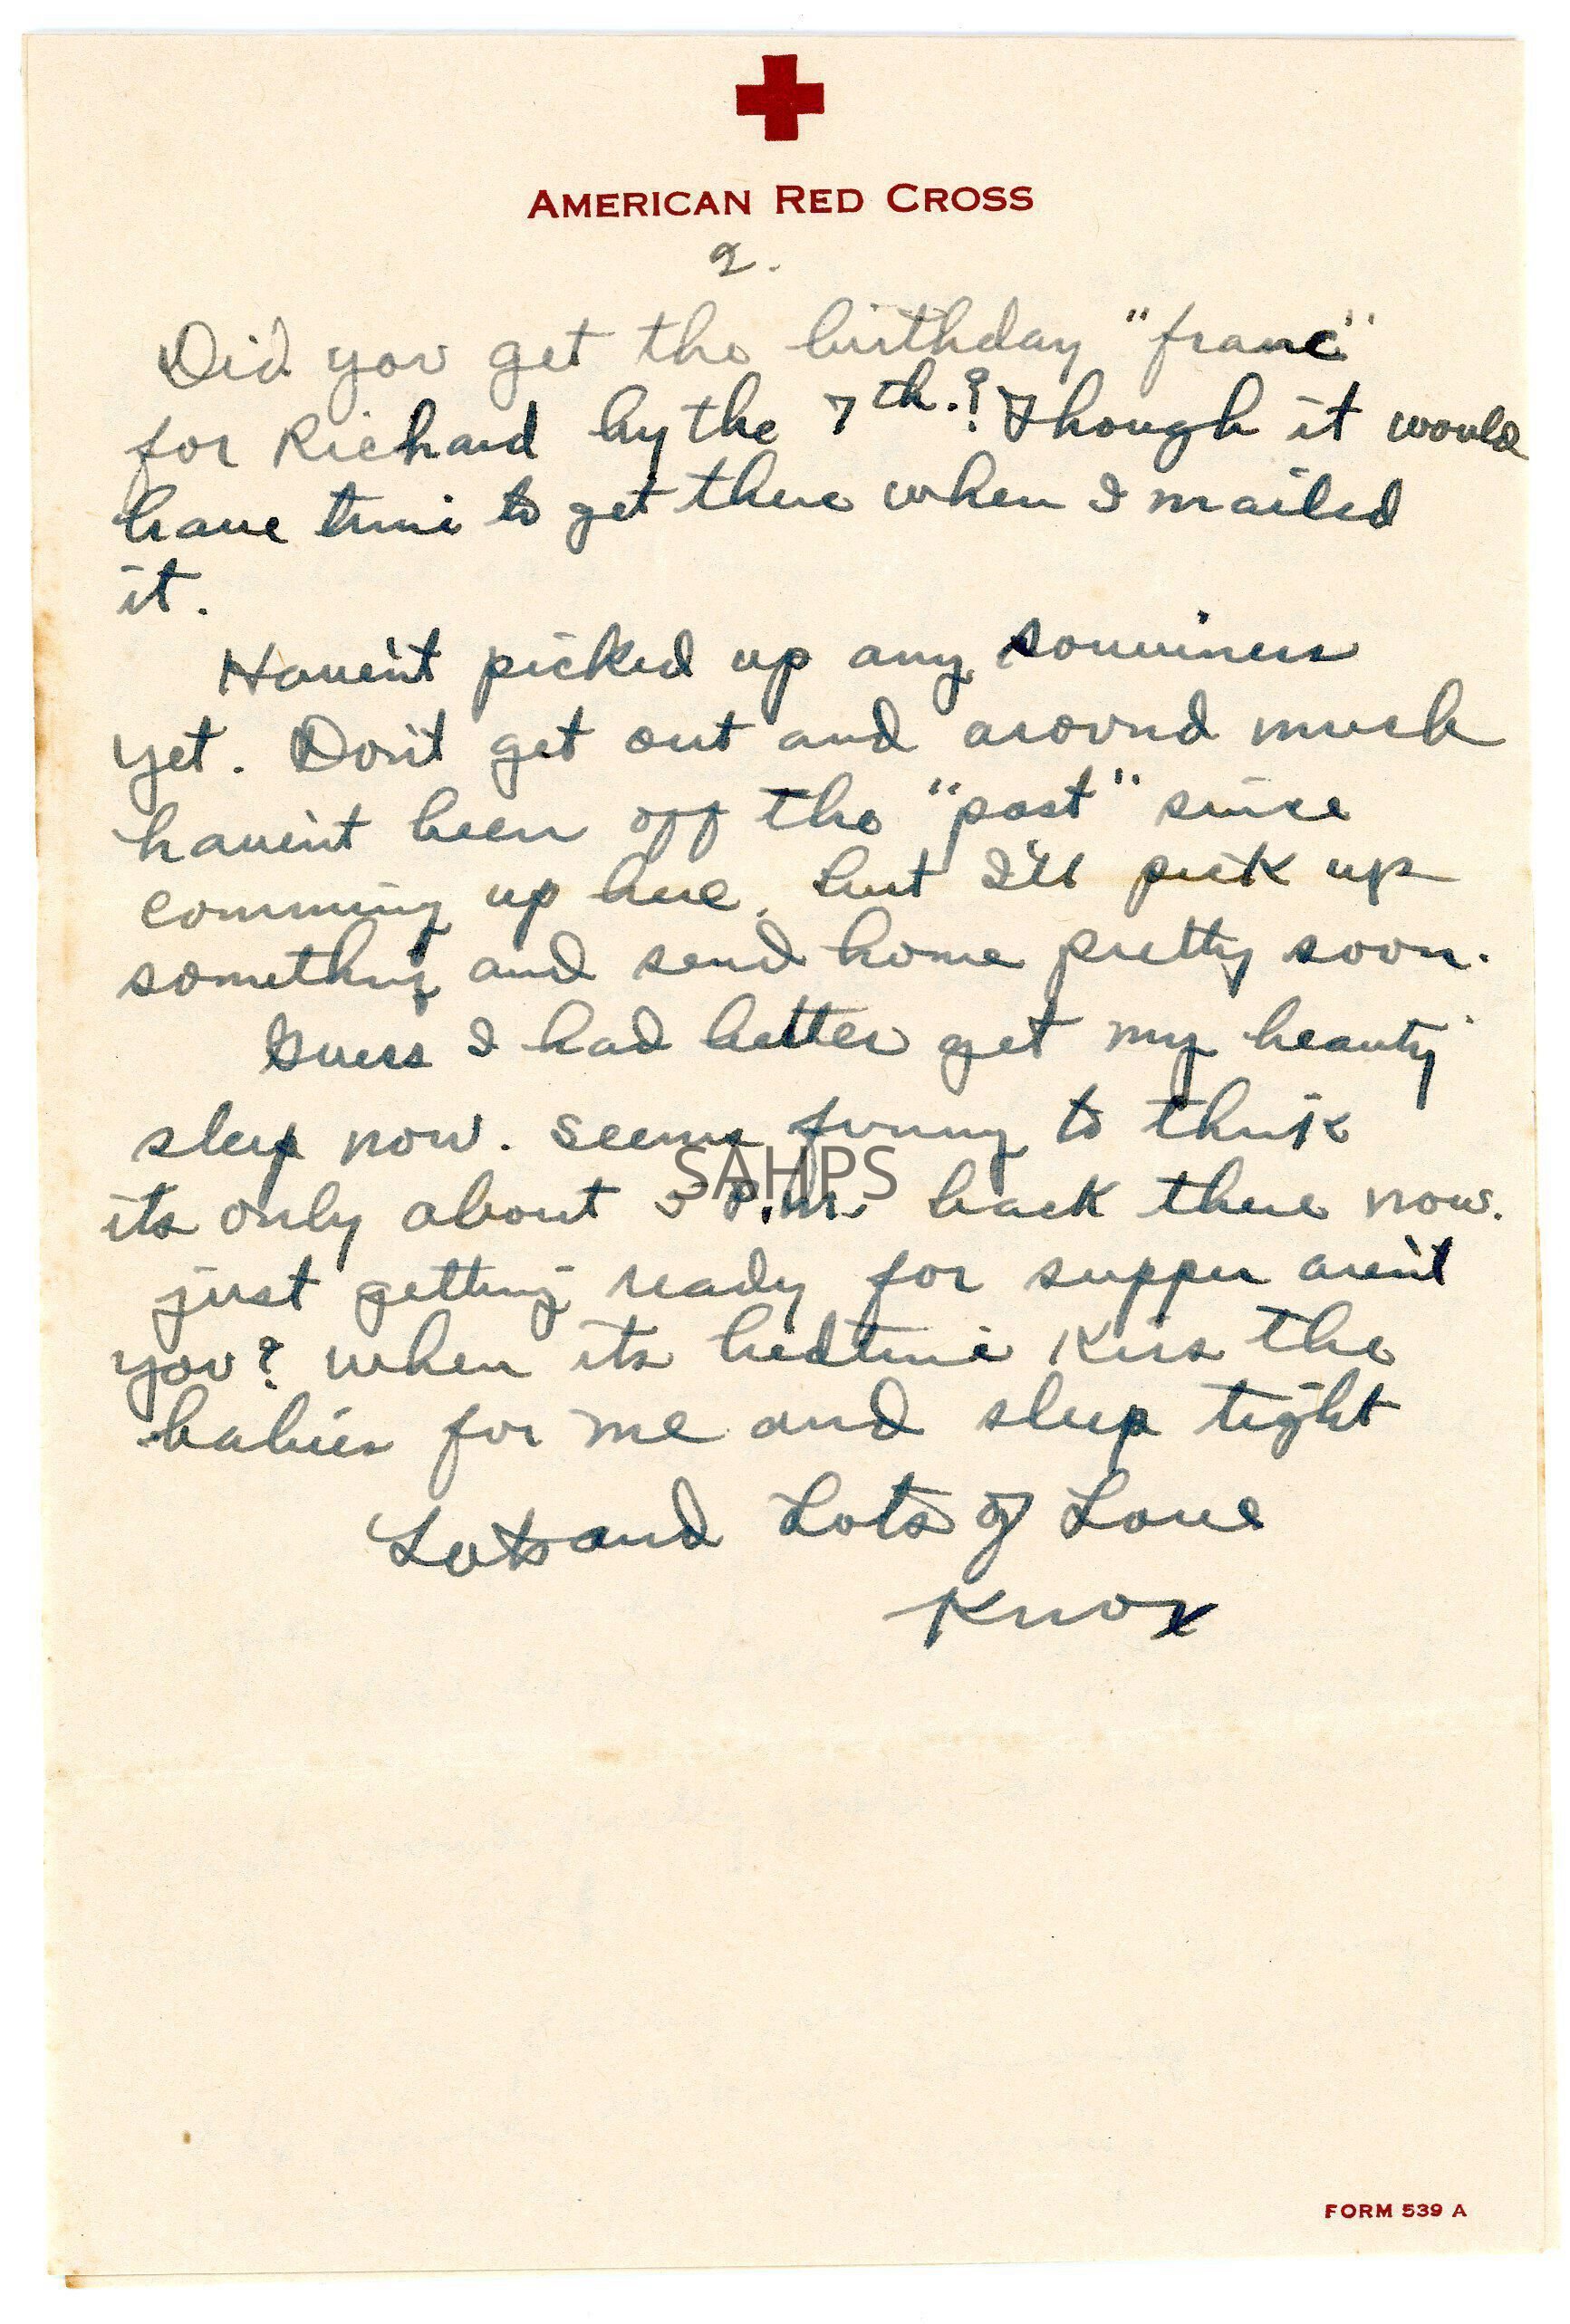 AMERICAN RED CROSS
2.
Did you get the birthday "franc"
for Richard by the 7th.? Though it would
have time to get there when I mailed
it.
Haven't picked up any souviners
yet. Don't get out and around much
haven't been off the "post" since
comming up here, but I'll pick up
something and send home pretty soon.
Guess I had better get my beauty
sleep now. Seems funny to think
SAHPS
its only about 5 P.M. back there now.
just getting ready for supper aren't
you? when its bedtime kiss the
babies for me and sleep tight
Lots and Lots of Love
Knox
FORM 539 A